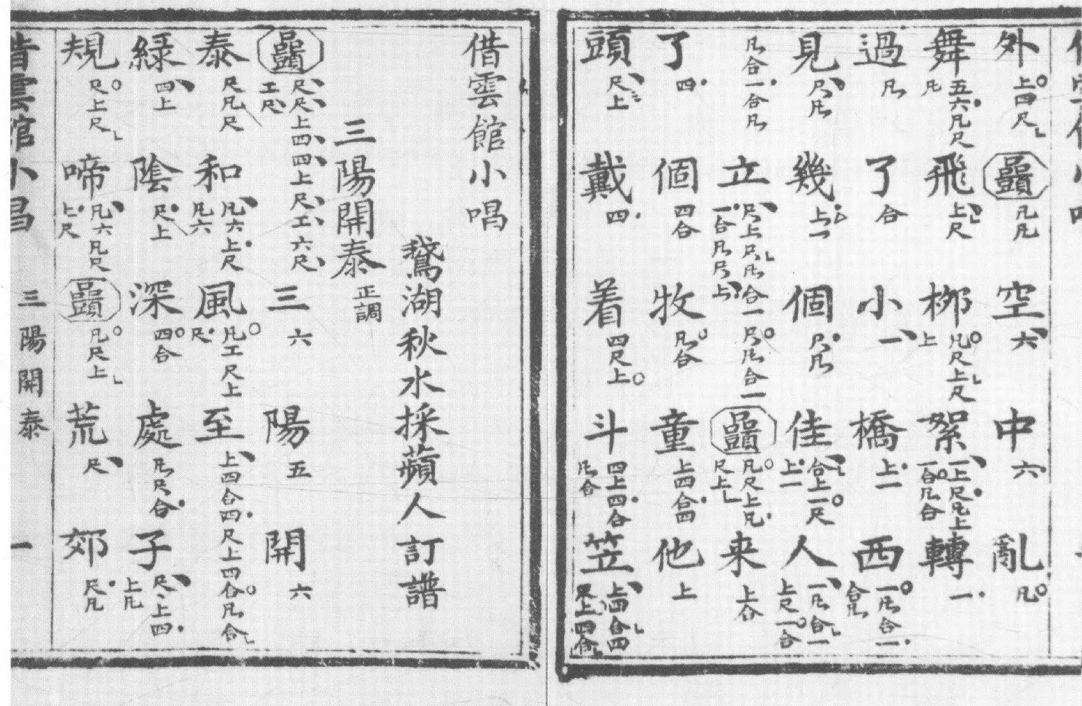 外上四尺凡凡空六中六亂凡
舞五六凡尺凡飛上尺柳凡尺上尺上絮一上尺凡上一合凡合轉一
過凡了合小一橋上一西一凡合一合凡
見尺凡幾上一個尺凡佳合上一尺上一人一凡合一上尺一合
凡合一合凡立尺上尺凡合一尺凡合一一合凡尺上凡尺上凡尺上來上合
了四個四合牧凡合童上四合四他上
頭尺上戴四着四尺上斗四上四合凡合笠上四合四尺上四合
借雲館小唱
鵝湖秋水採蘋人訂譜
三陽開泰正調
尺尺上四四上尺工六尺工尺三六陽五開六
泰尺凡尺和凡六上尺凡六風凡工尺上尺至上四合四尺上四合凡合
綠四上陰尺上深四合處凡尺合子尺上四上凡
規尺上尺啼凡六凡尺上尺凡尺上荒尺郊尺凡
借雲館小唱 三陽開泰 一